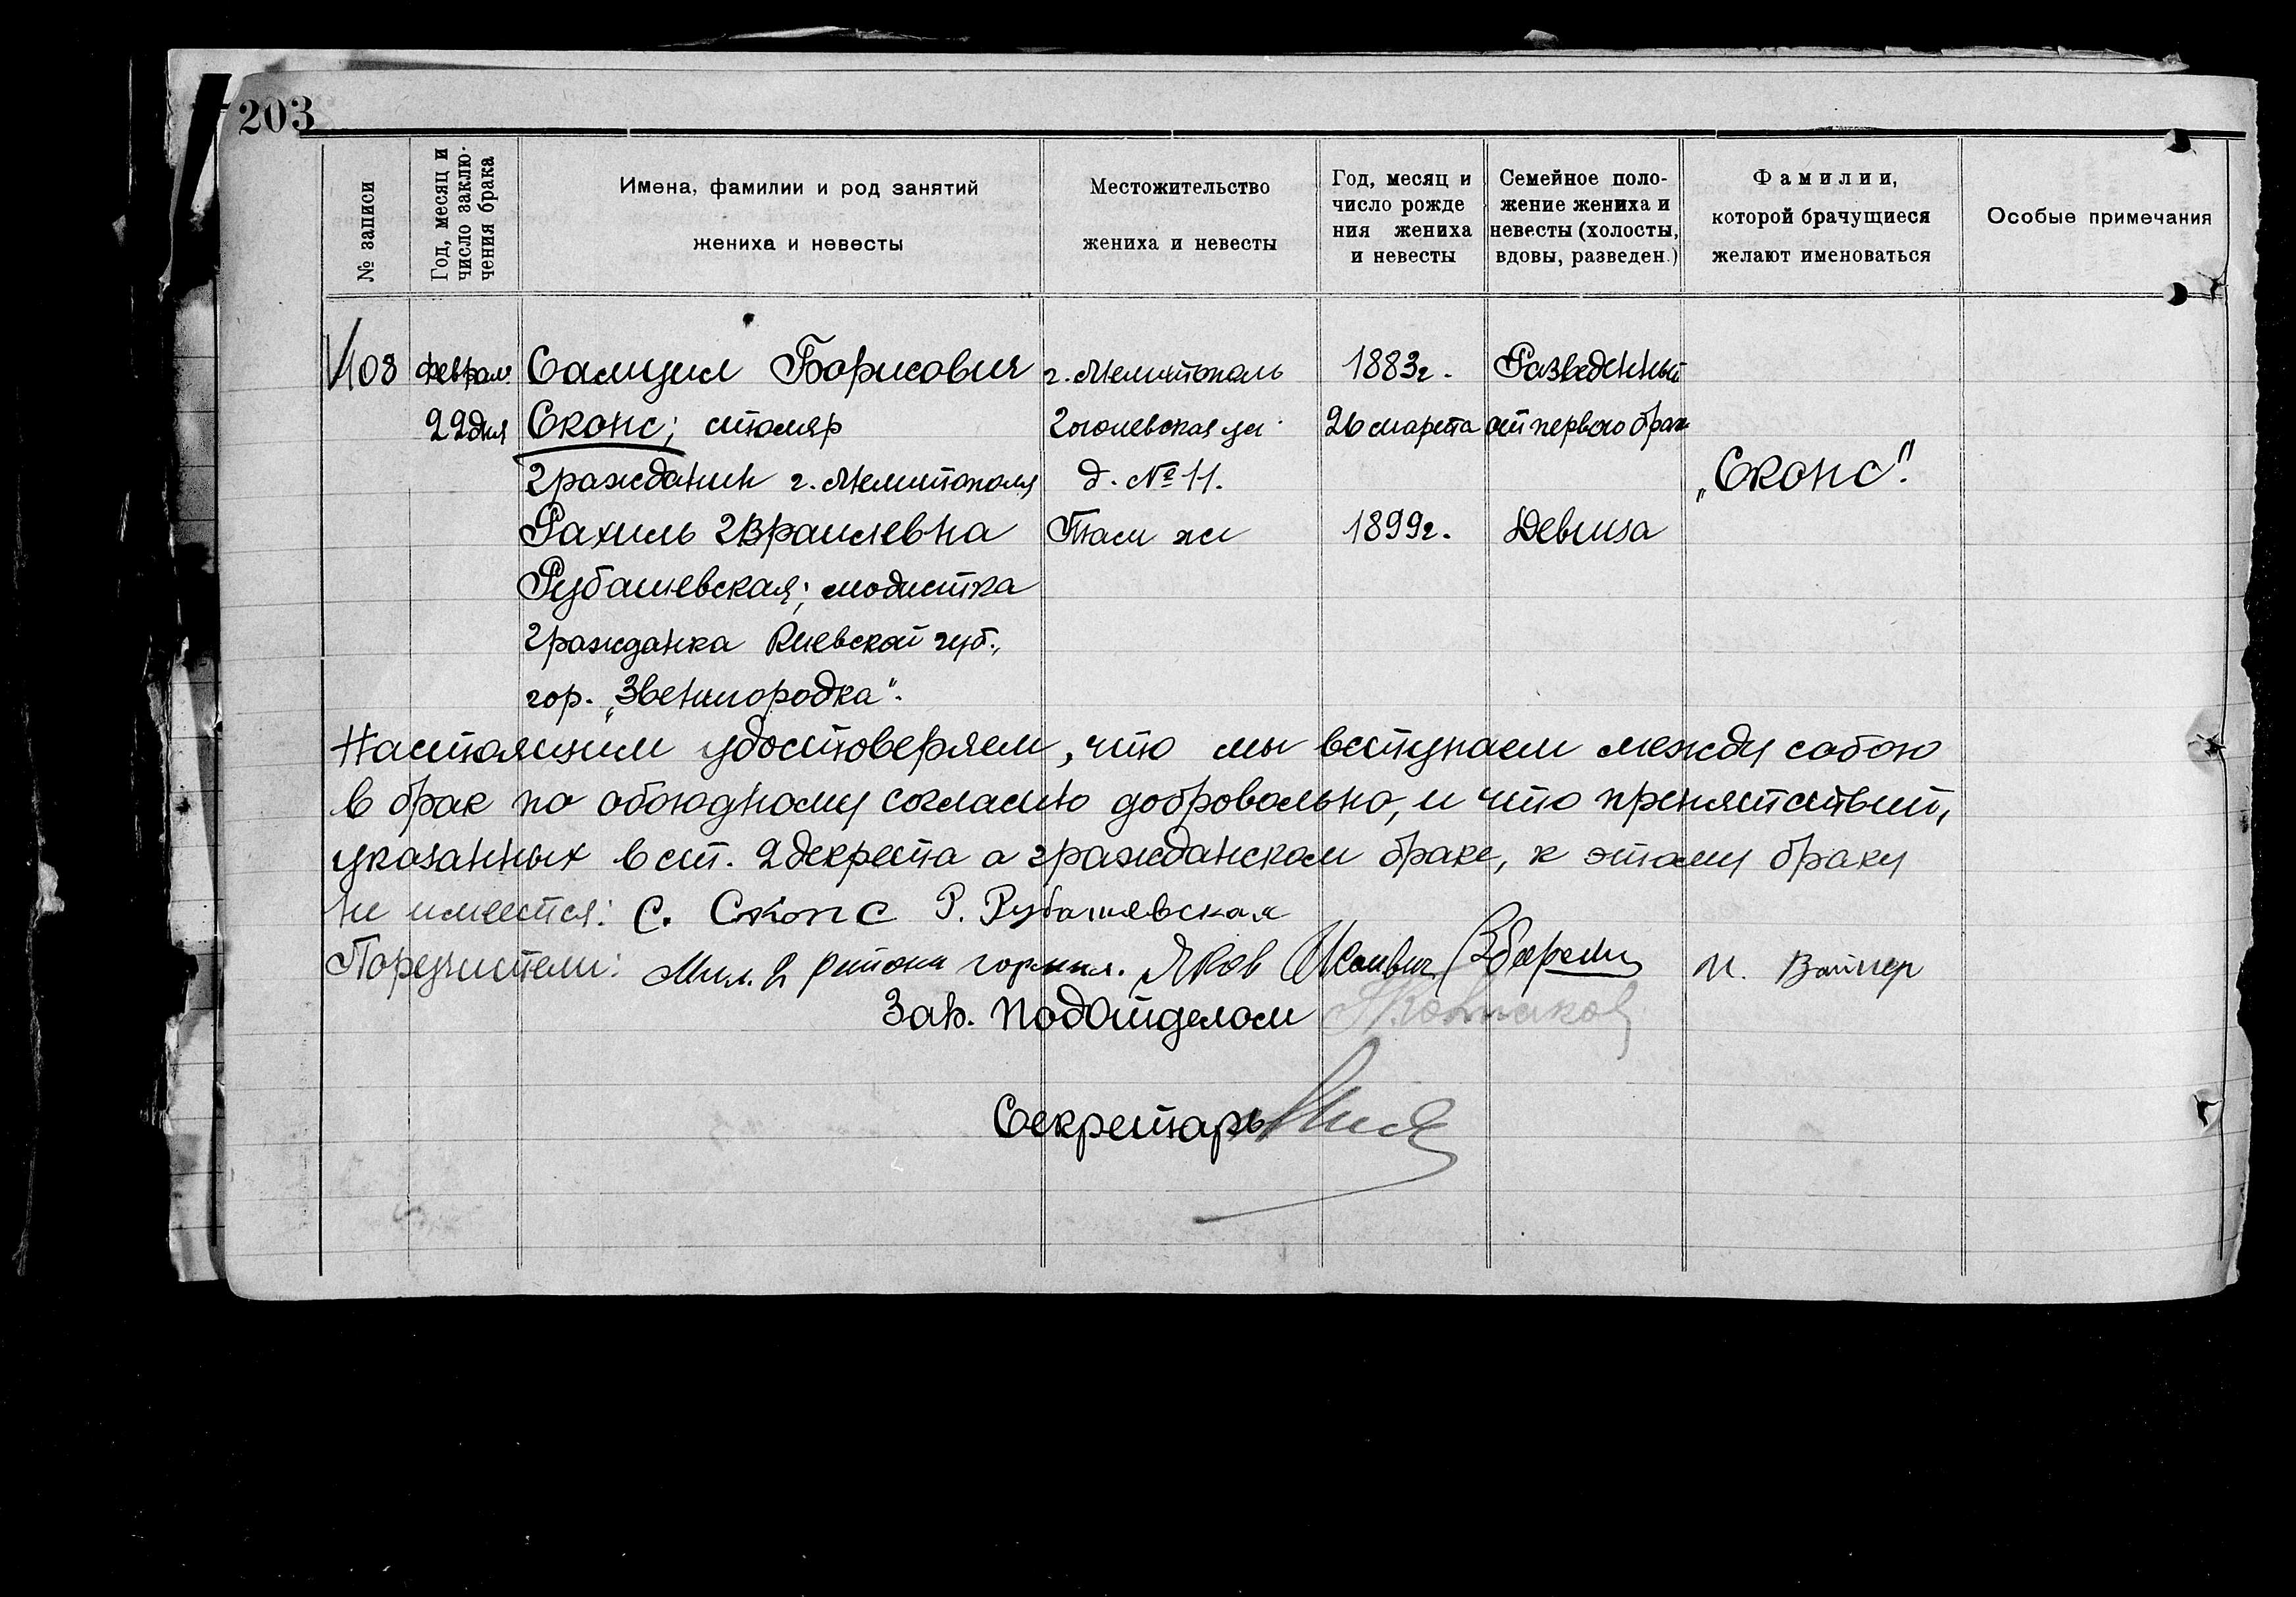 203
№ записи
Год, месяц и
число заклю-
чения брака
Имена, фамилии и род занятий
жениха и невесты
Местожительство
жениха и невесты
Год, месяц и
число рожде
ния жениха
и невесты
Семейное поло-
жение жениха и
невесты (холосты,
вдовы, разведен.)
Фамилии,
которой брачущиеся
желают именоваться
Особые примечания
108 Самуил Борисович г. Мелитополь 1883г. Разведенный
22 дня Сконс; столяр Гоголевская ул. 26 марта от первого
гражданин г. Мелитополя д. №11. „Сконс".
Рахиль Израилевна Там же 1899г. Девица
Рубашевская; модистка
гражданка Киевской губ.,
гор. „Звенигородка".
Настоящим удостоверяем, что мы вступаем между собою
в брак по обоюдному согласию добровольно, и что препятствий,
указанных в ст. 2 декрета о гражданском браке, к этому браку
не имеется: С. Сконс Р. Рубашевская
Поручители: Мил. 2 района Яков
Зав. подотделом
Секретарь